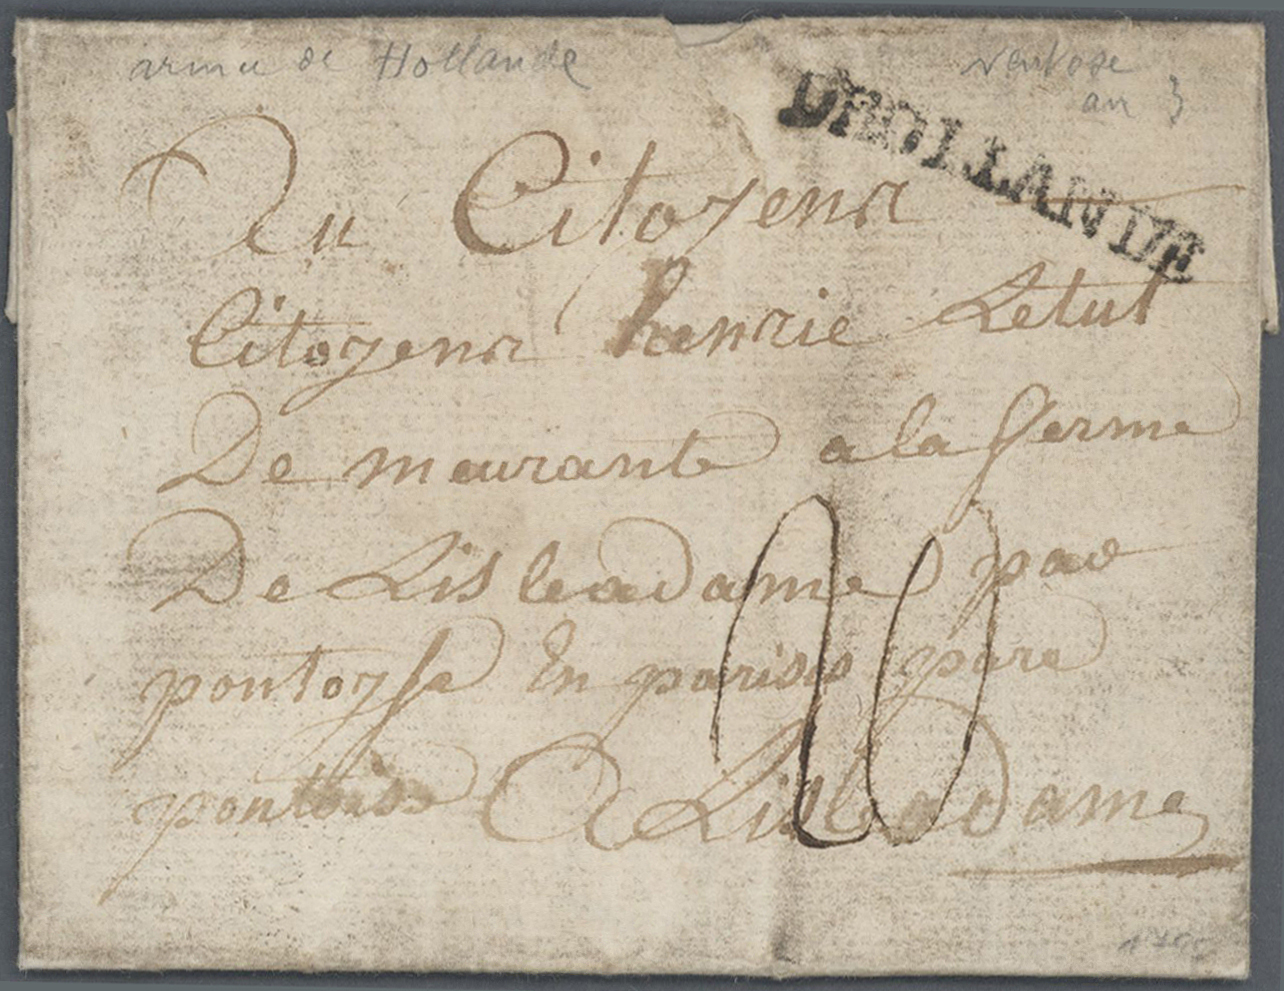 armee de Hollande
ventose
an 3
D'HOLLANDE
Au Citoyenr
Citoyenr henrie Letut
De meurante a la ferme
De Lisleadame par
pontoyse En parisis pare
pontoise A Lisleadame
20